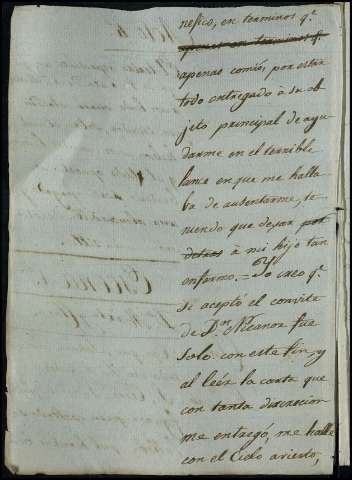 nefico, en terminos q.e
apenas en terminos q.e
apenas comió, por estar
todo entregado à su ob
jeto principal de ayu
darme en el terrible
lance en que me halla
ba de ausentarme, te
niendo que dexar por
detras à mi hijo tan
enfermo. = Yo creo q.e
si aceptó el convite
de D.n Nicanor fue
solo con este fin, y
al leér la carta que
con tanta discrecion
me entregó, me hallé
con el Cielo avierto,